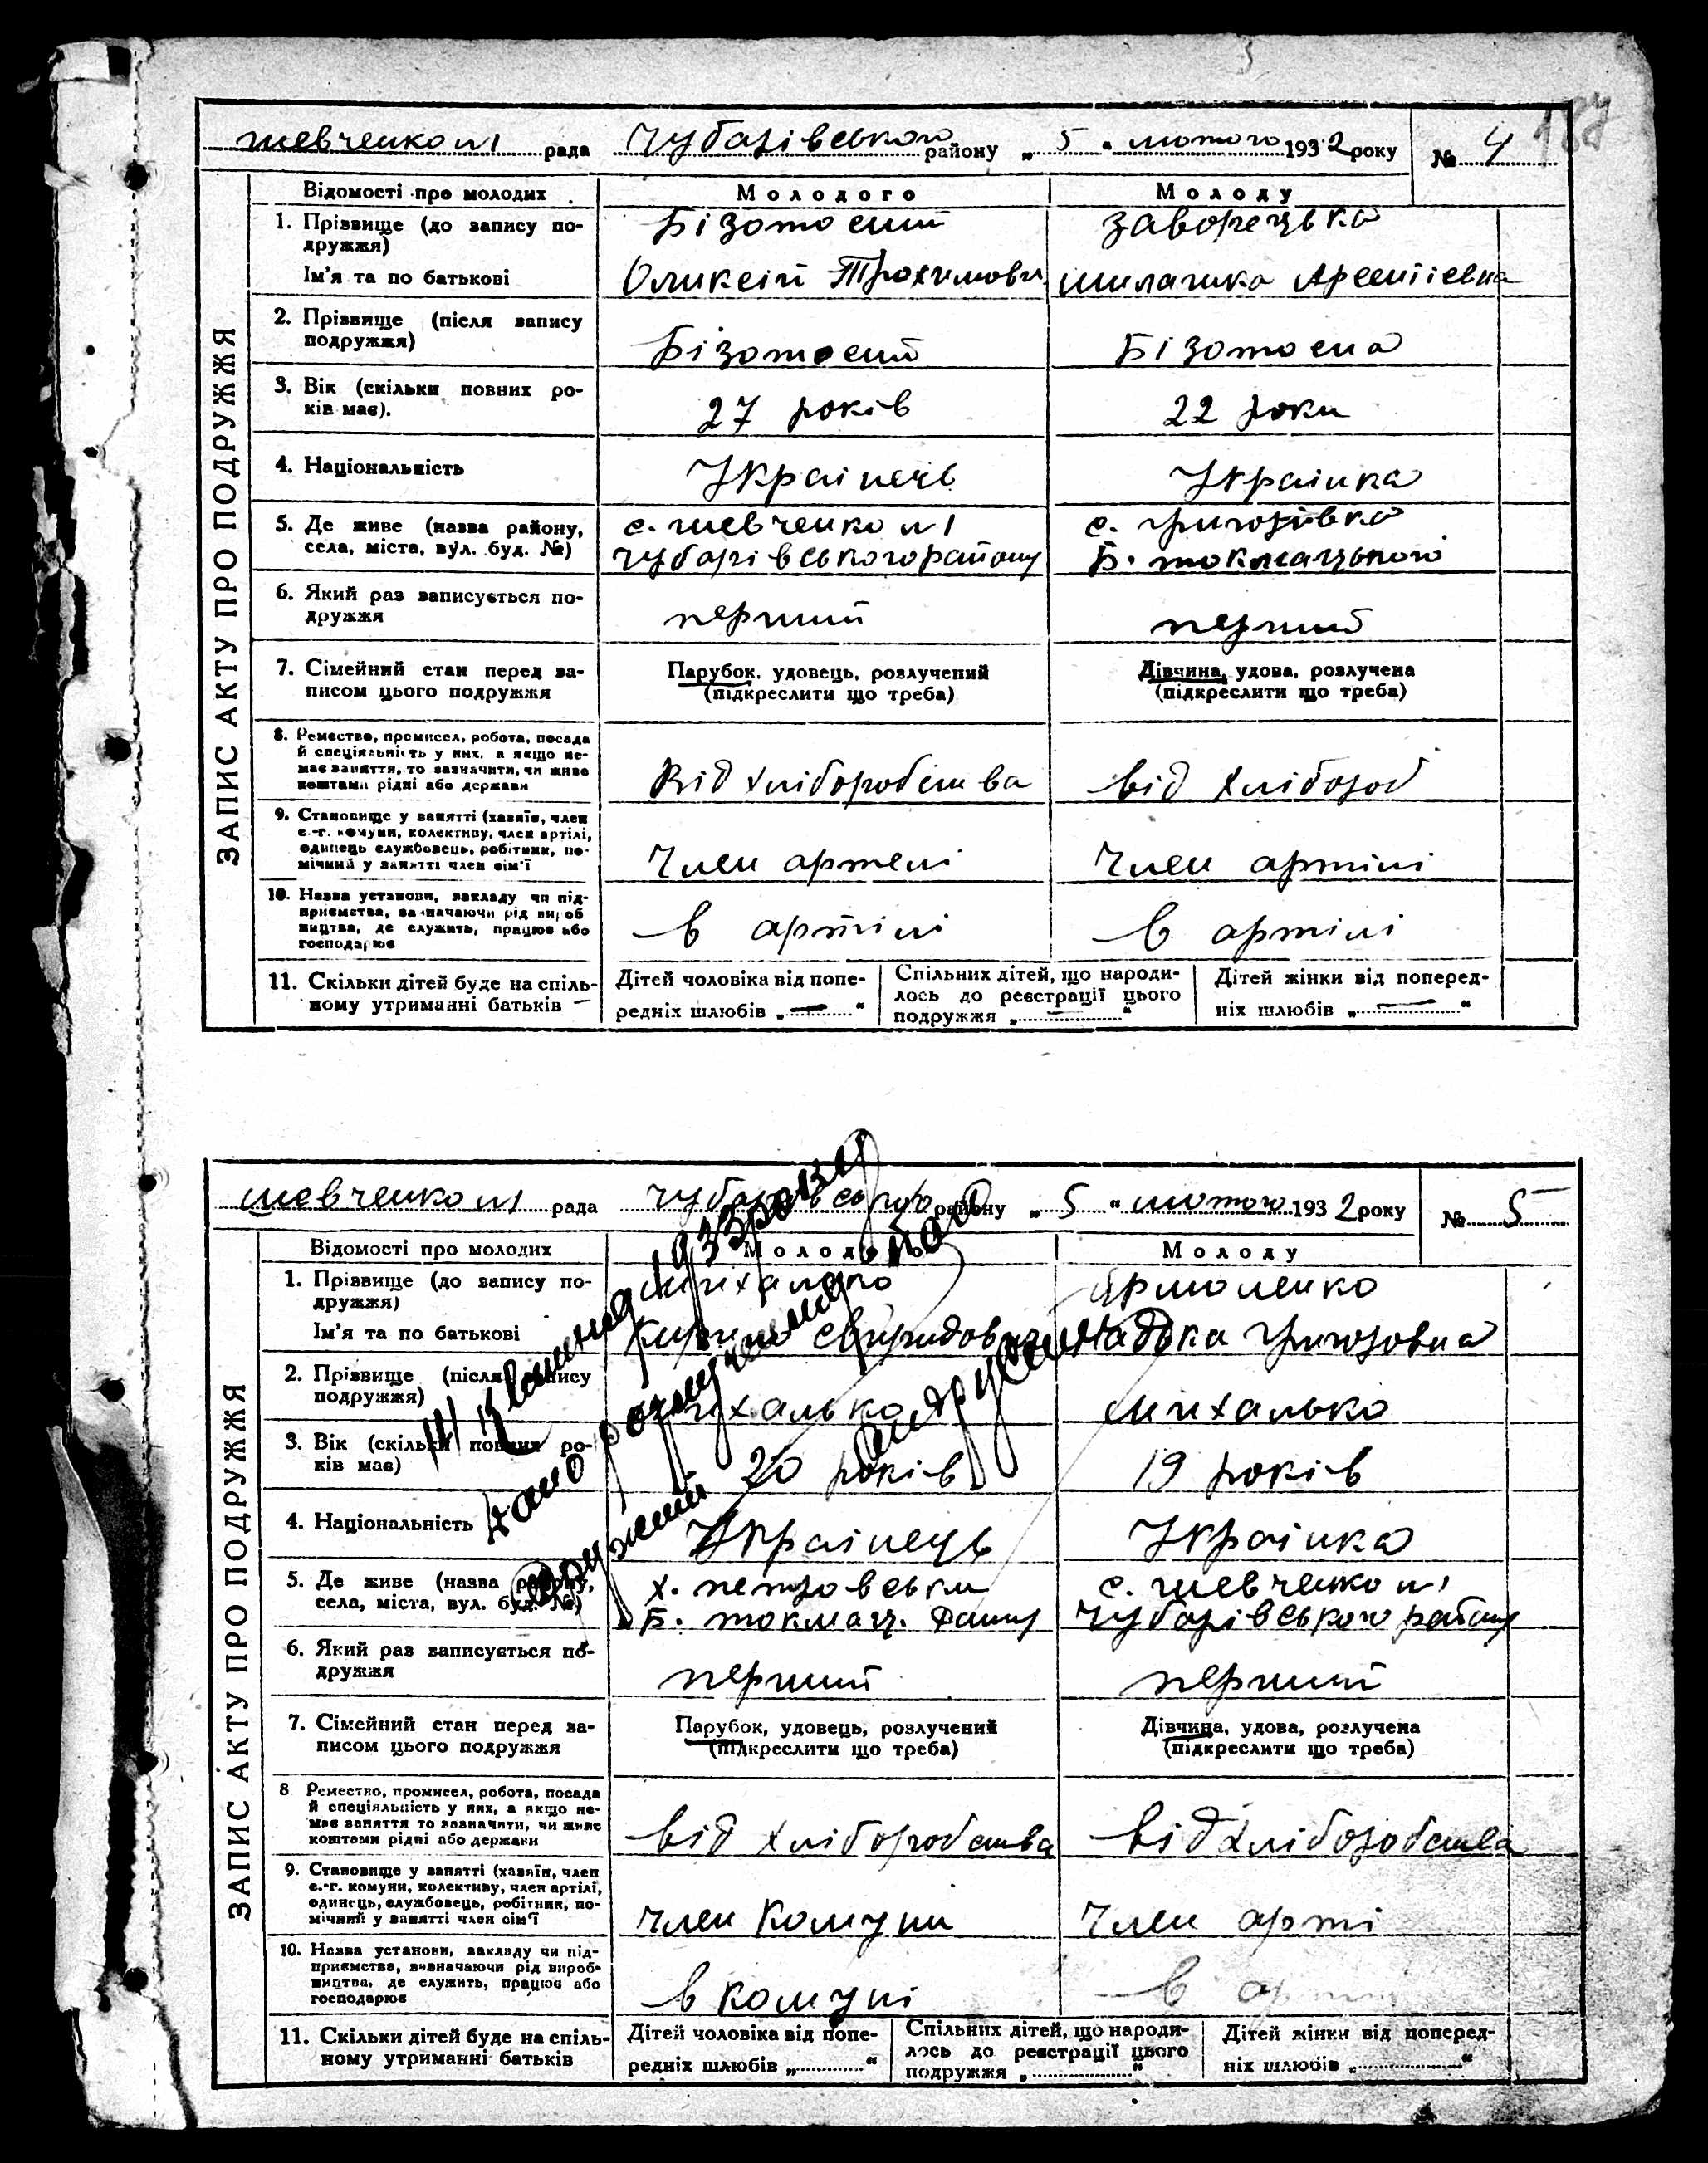 187
шевченко №1 рада Чубарівського району „ 5 " лютого 1932 року № 4
ЗАПИС АКТУ ПРО ПОДРУЖЖЯ
Відомості про молодих Молодого Молоду
1. Прізвище (до запису по-
дружжя) Бізотоений Заворецька
Ім'я та по батькові Оликсій Трохимович Милашка Арсентіевна
2. Прізвище (після запису
подружжя)
3. Вік (скільки повних ро-
ків має). 27 років 22 роки
4. Національність Украінець Украінка
5. Де живе (назва району, с. шевченко №1 с. Григорівка
села, міста, вул. буд. №) Чубарівського району Б. токмацького
6. Який раз записується по-
дружжя перший перший
7. Сімейний стан перед за- Парубок, удовець, розлучений Дівчина, удова, розлучена
писом цього подружжя (підкреслити що треба) (підкреслити що треба)
8. Ремество, промисел, робота, посада
й спеціяльність у них, а якщо не-
має заняття, то зазначити, чи живе
коштами рідні або держави Від хліборобства від хлібороб
9. Становище у занятті (хазяїн, член
с.-г. комуни, колективу, член артілі,
одинець службовець, робітник, по-
мічний у занятті член сім'ї Член артелі Член артілі
10. Назва установи, закладу чи під-
приємства, зазначаючи рід вироб
ництва, де служить, працює або
господарює в артілі в артілі
11. Скільки дітей буде на спіль- Дітей чоловіка від попе- Спільних дітей, що народи- Дітей жінки від поперед-
ному утриманні батьків — редніх шлюбів „ — " лось до реєстрації цього ніх шлюбів „ — "
подружжя „ — "
шевченко №1 рада Чубарівського району „ 5 " лютого 1932 року № 5
ЗАПИС АКТУ ПРО ПОДРУЖЖЯ
Відомості про молодих Молодого Молоду
1. Прізвище (до запису по-
дружжя) Михалько Ярмоленко
Ім'я та по батькові Кирило Свиридович Надька Григоровна
2. Прізвище (після запису
подружжя) Михалько Михалько
3. Вік (скільки повних ро-
ків має) 20 років 19 років
4. Національність Украінець Украінка
5. Де живе (назва району, х. петровськи с. шевченко №1
села, міста, вул. буд. №) Б. токмац. Району Чубарівського району
6. Який раз записується по-
дружжя перший перший
7. Сімейний стан перед за- Парубок, удовець, розлучений Дівчина, удова, розлучена
писом цього подружжя (підкреслити що треба) (підкреслити що треба)
8 Ремество, промисел, робота, посада
й спеціяльність у них, а якщо не-
має заняття то зазначити, чи живе
коштами рідні або держави від хліборобства від хліборобства
9. Становище у занятті (хазяїн, член
с.-г. комуни, колективу, член артілі,
одинець, службовець, робітник, по-
мічний у занятті член сім'ї член Комуни Член арті
10. Назва установи, закладу чи під-
приємства, зазначаючи рід вироб-
ництва, де служить, працює або
господарює в комуні в
11. Скільки дітей буде на спіль- Дітей чоловіка від попе- Спільних дітей, що народи- Дітей жінки від поперед-
ному утриманні батьків редніх шлюбів „ " лось до реєстрації цього ніх шлюбів „ "
подружжя „ "
1933 року